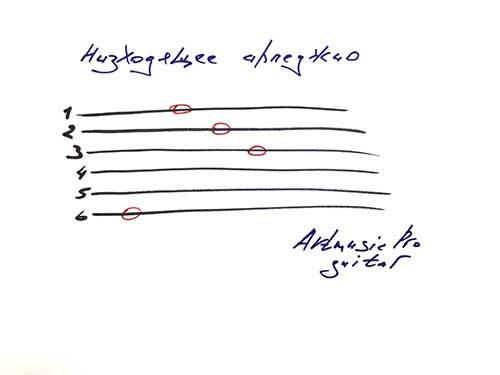 Низходящее арпеджио
1
2
3
4
5
6
Artmusic Pro
guitar